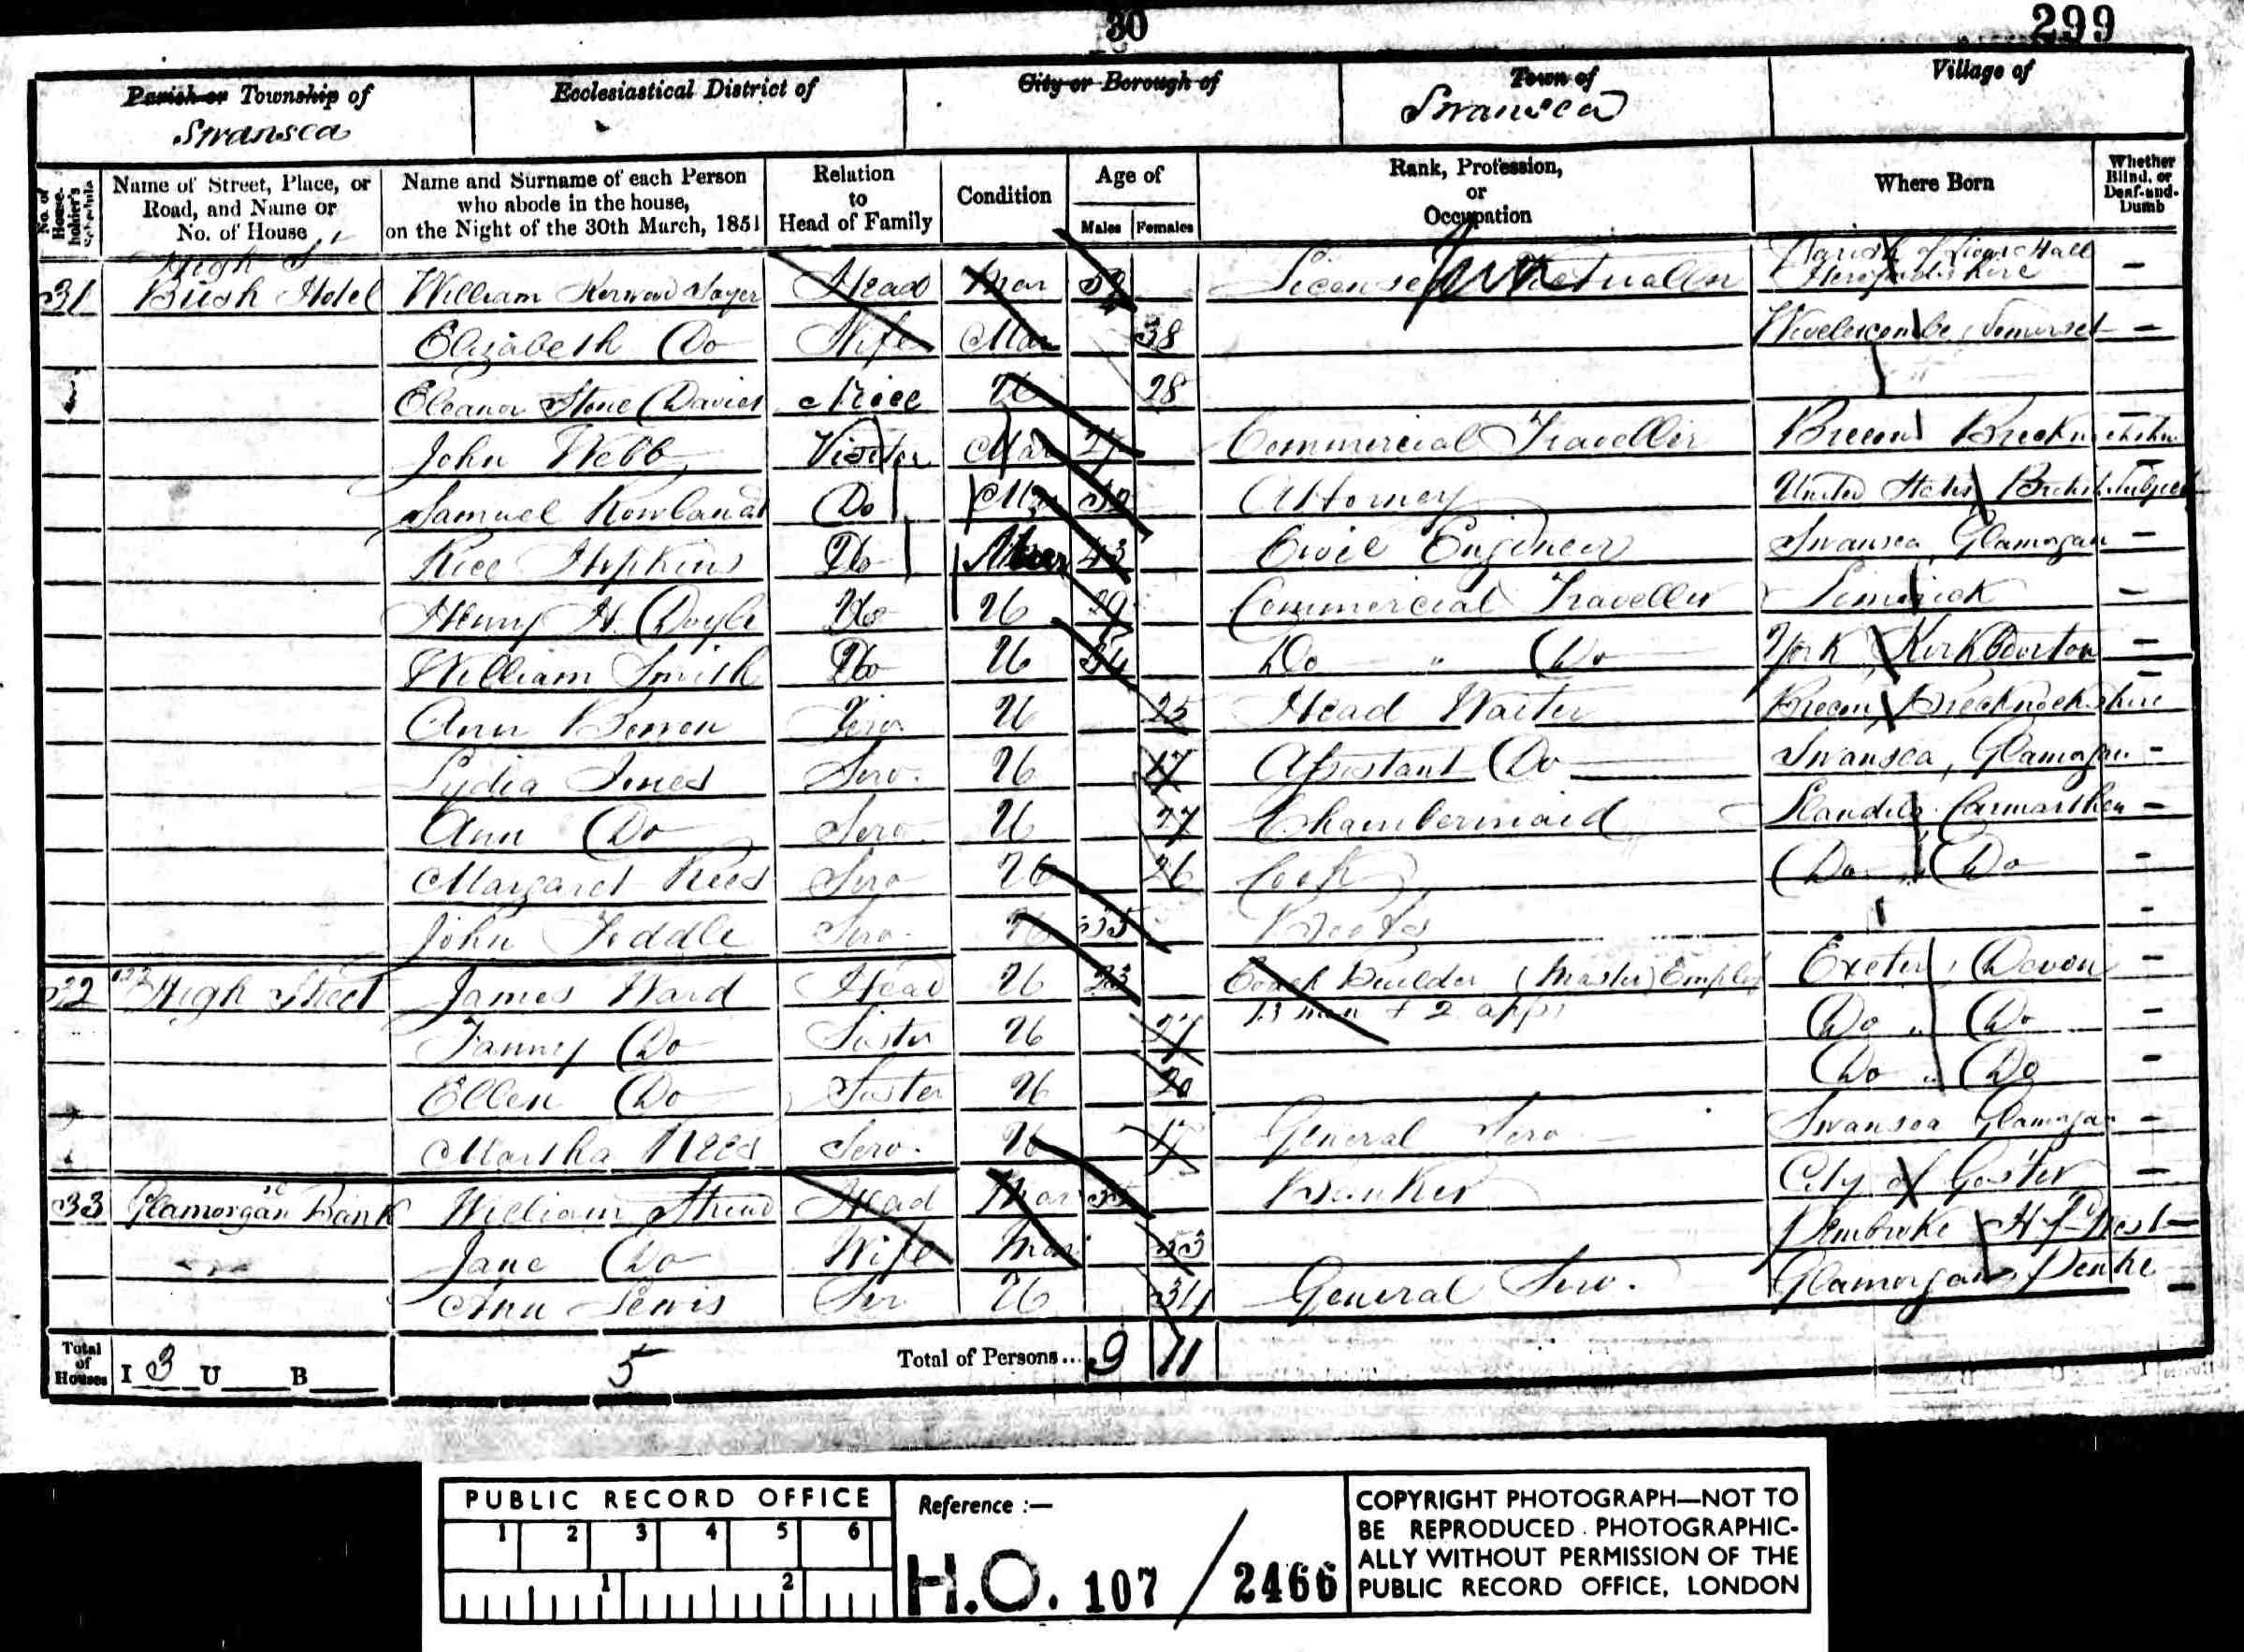 30
299
Parish or Township of
Swansea
Ecclesiastical District of
City or Borough of
Town of
Swansea
Village of
No. of House-holder's Schedule
Name of Street, Place, or Road, and Name or No. of House
Name and Surname of each Person who abode in the house, on the Night of the 30th March, 1851
Relation to Head of Family
Condition
Age of
Males Females
Rank, Profession, or Occupation
Where Born
Whether Blind, or Deaf-and-Dumb
High St
Parish of Hall
31 Bush Hotel William Sayer Head Mar Licensed Victualler Herefordshire –
Elizabeth Do Wife Mar 38 Wiveliscombe, Somerset –
Eleanor Stone Davies Niece U 28
John Webb Visitor Mar 27 Commercial Traveller Brecon Brecknockshire –
Samuel Rowland Do Mar Attorney United States British Subject
Rice Hopkins Do Mar 43 Civil Engineer Swansea, Glamorgan –
Henry H. Doyle Do U 29 Commercial Traveller Limerick –
William Smith Do U 34 Do " Do York, Kirkburton –
Ann Serv. U 25 Head Waiter Brecon, Brecknockshire –
Lydia Jones Serv. U 17 Assistant Do Swansea, Glamorgan –
Ann Do Serv. U 27 Chambermaid Llandilo Carmarthen –
Margaret Rees Serv U 26 Cook Do " Do –
John Serv. U 35 Boots –
32 High Street James Ward Head U 23 Coach Builder (Master) Employ Exeter, Devon –
13 men + 2 apps
Fanny Do Sister U 27 Do " Do –
Ellen Do Sister U 20 Do " Do –
Martha Rees Serv. U 17 General Serv Swansea Glamorgan –
33 Glamorgan Bank William Head Mar Banker City of –
Jane Do Wife Mar 53 Pembroke H f West –
Ann Lewis Ser U 34 General Serv. Glamorgan, –
Total of Houses I 3 U B
5
Total of Persons... 9 11
PUBLIC RECORD OFFICE
1 2 3 4 5 6
1 2
Reference :—
H.O. 107 / 2466
COPYRIGHT PHOTOGRAPH—NOT TO
BE REPRODUCED PHOTOGRAPHIC-
ALLY WITHOUT PERMISSION OF THE
PUBLIC RECORD OFFICE, LONDON